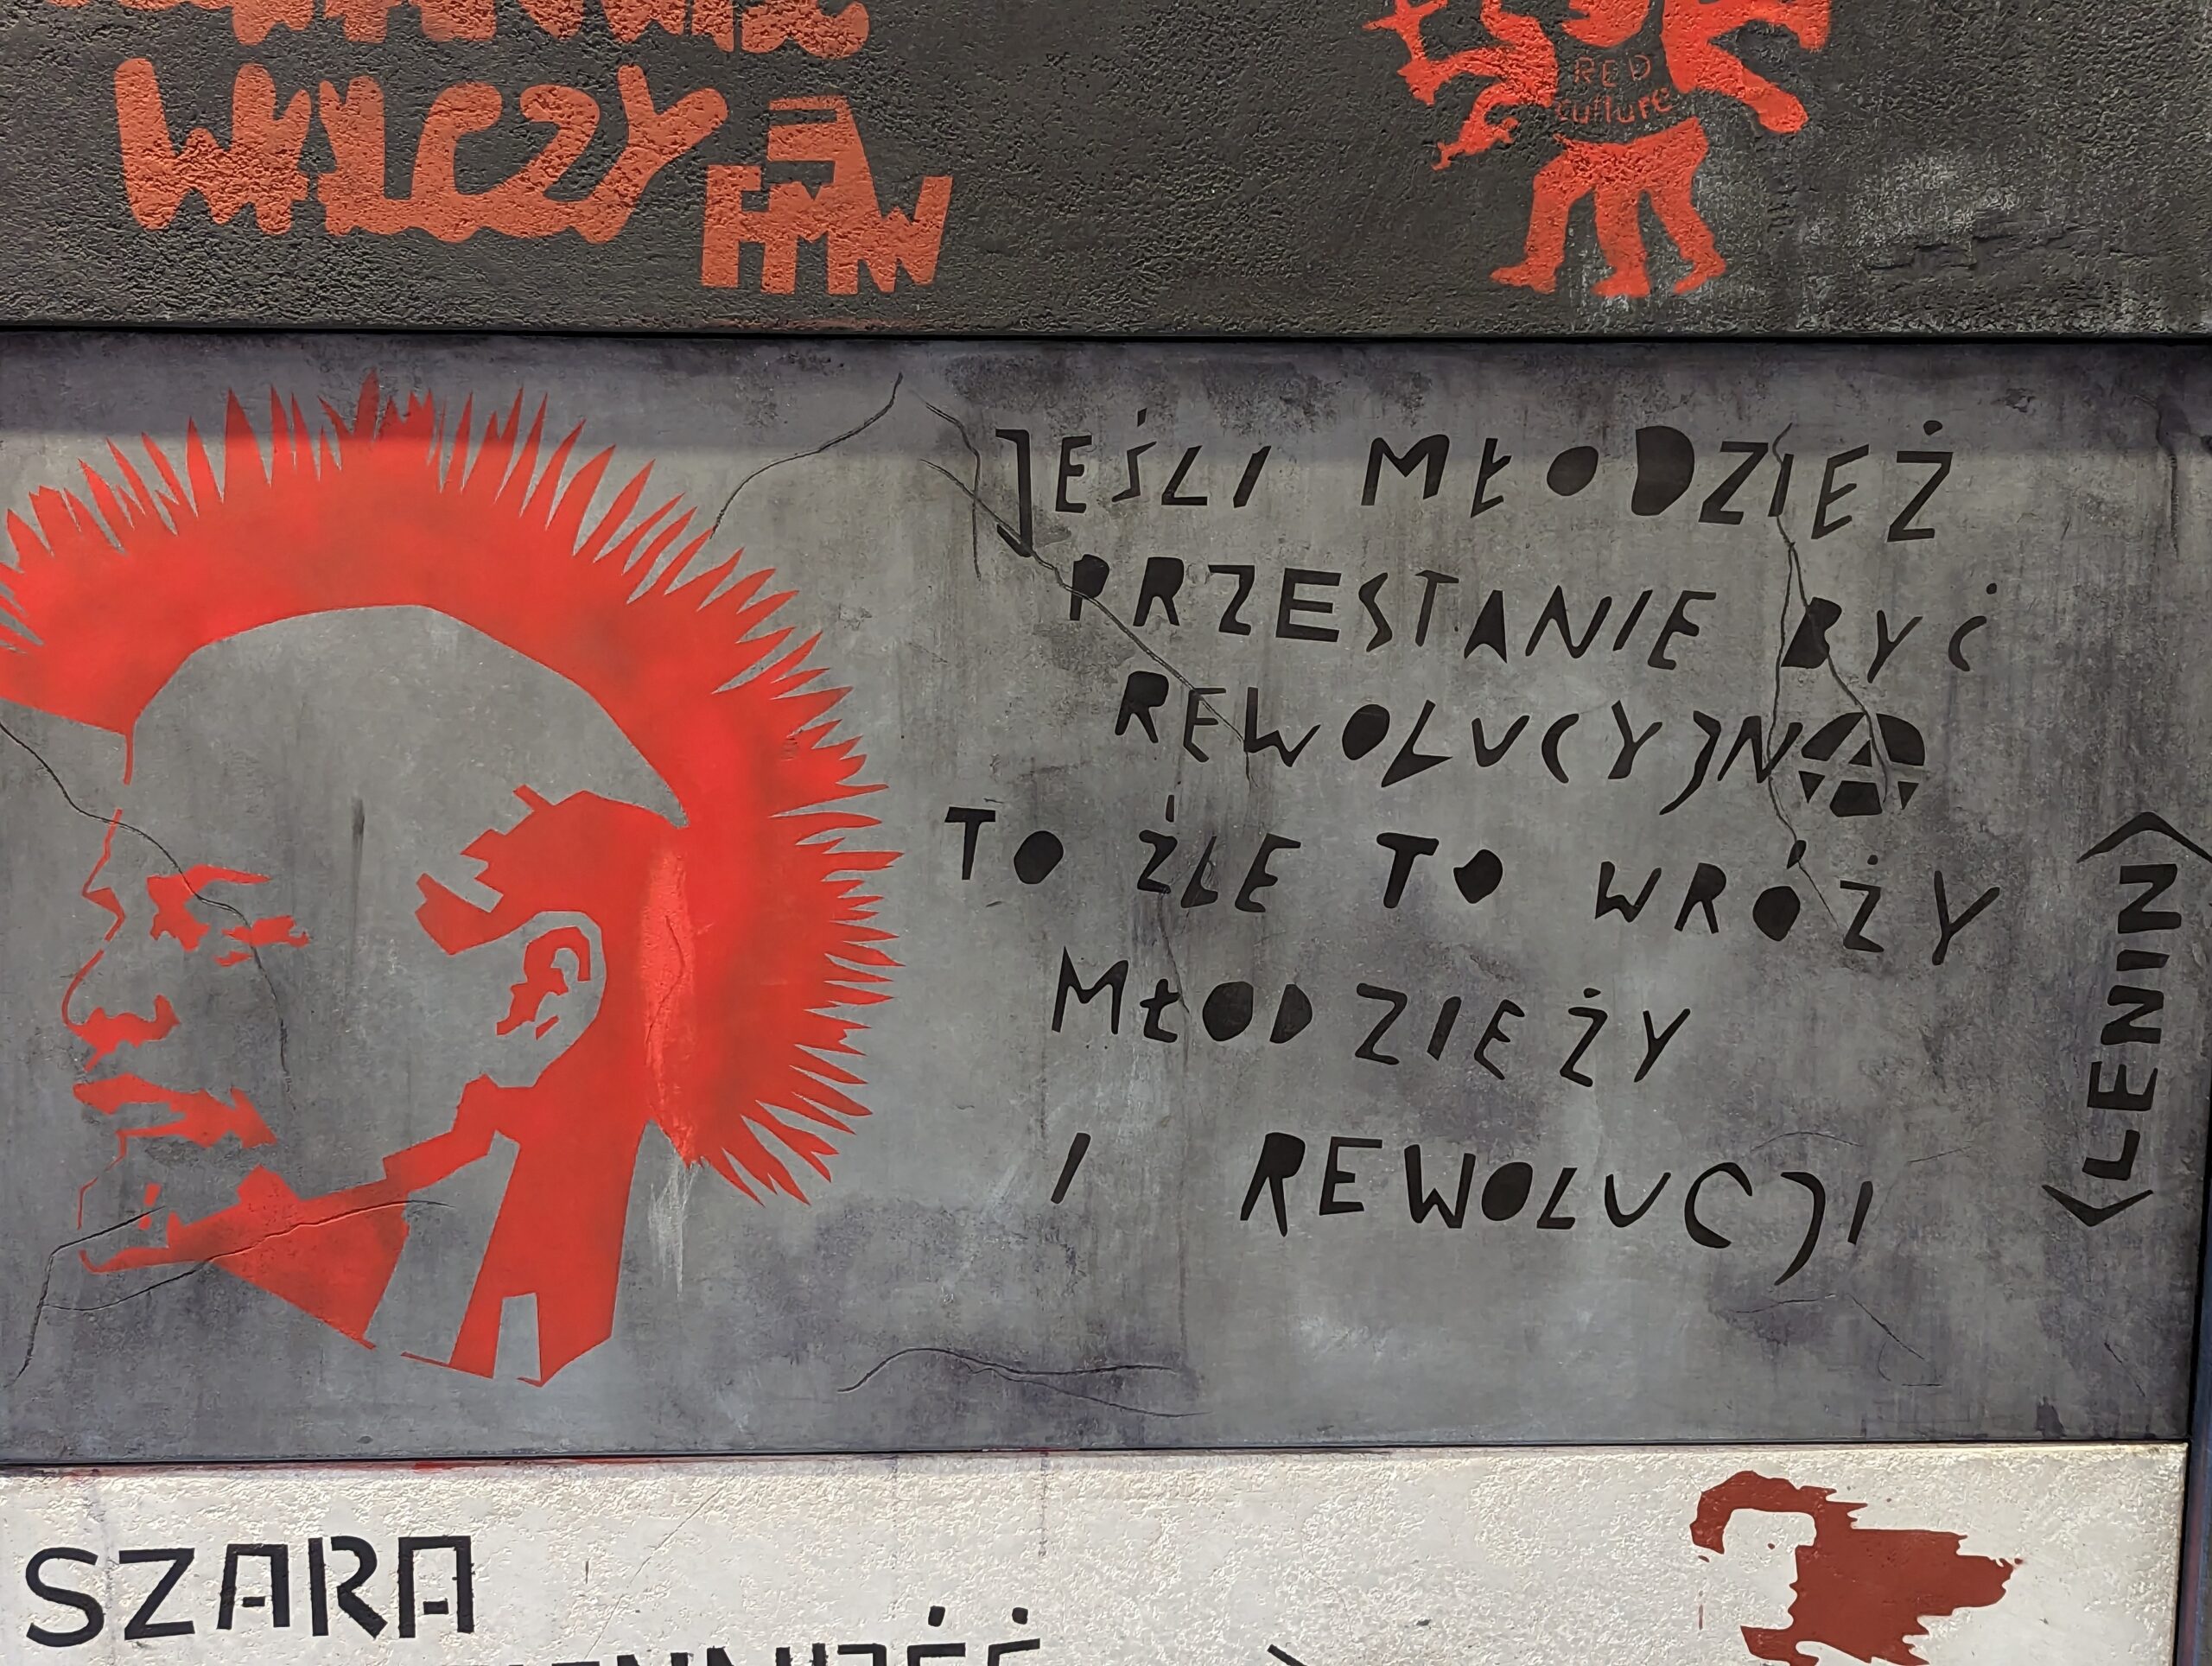 WILCZY
FMW
RED
culture
JEŚLI MŁODZIEŻ
PRZESTANIE BYĆ
REWOLUCYJNA
TO ŹLE TO WRÓŻY
MŁODZIEŻY
I REWOLUCJI
<LENIN>
SZARA